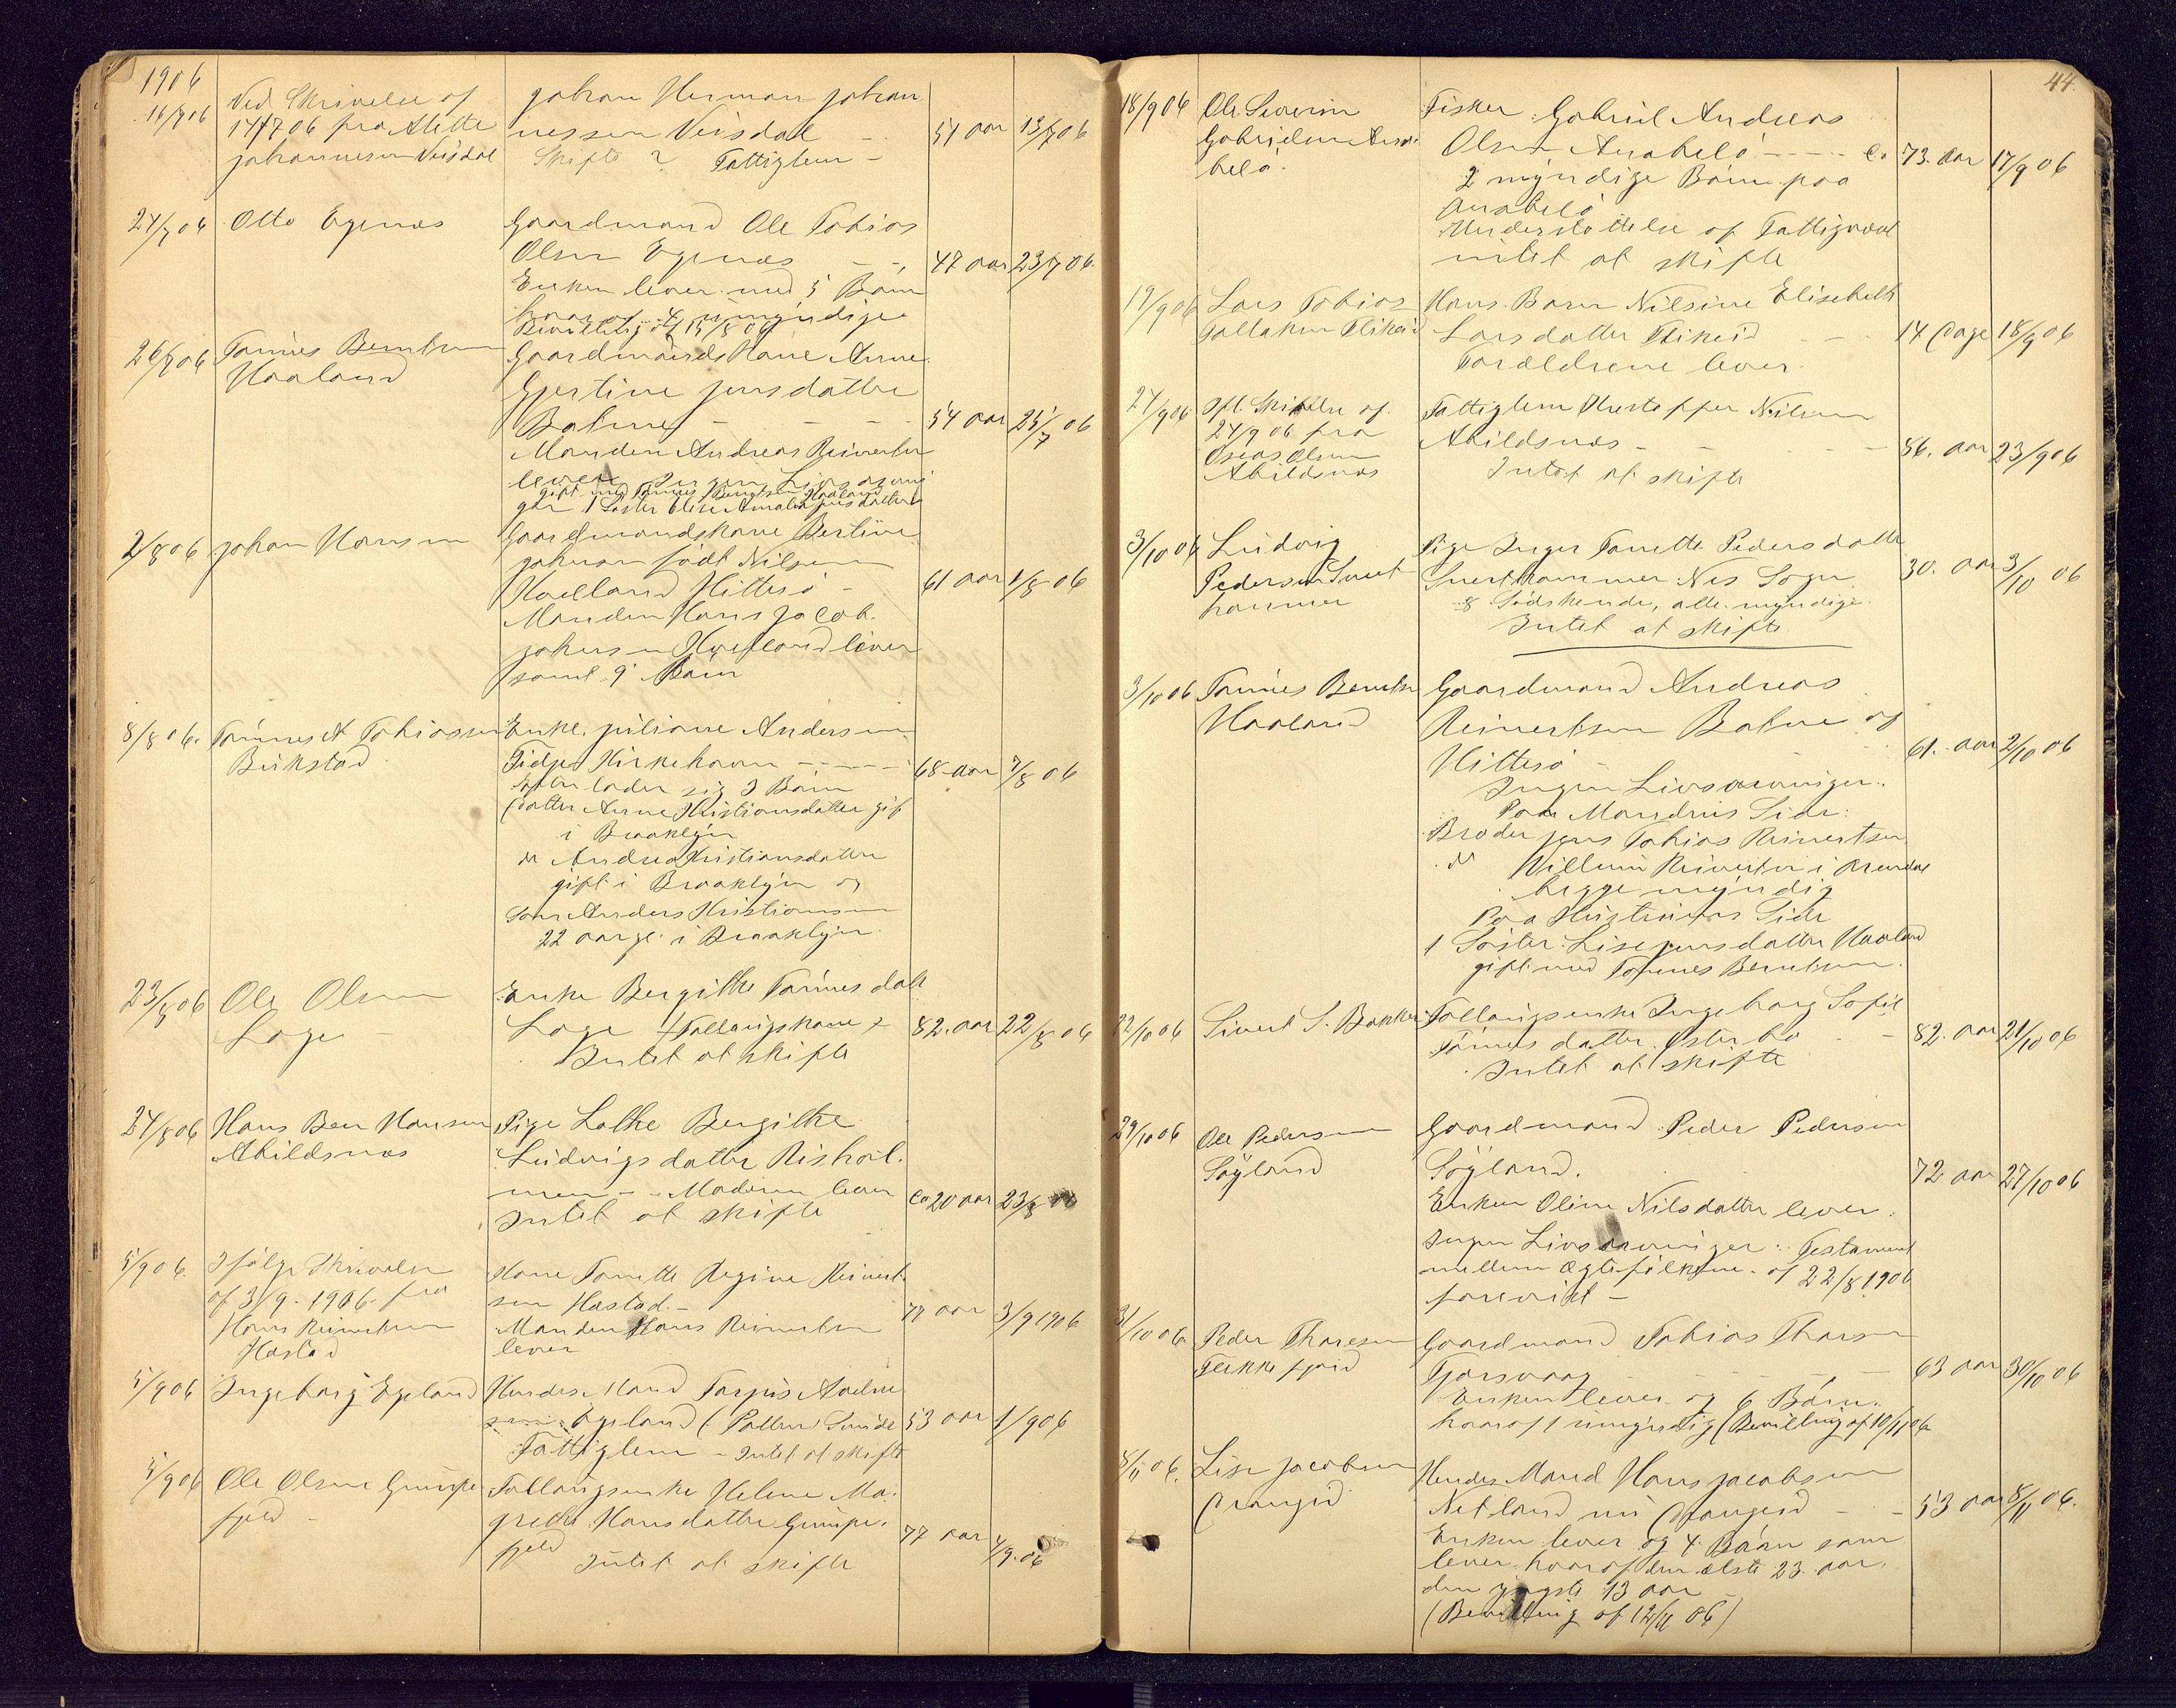 1906
16/7 06 Ved Skrivelse af
14/7 06 fra Alette
Johannesen Veisdal
Johan Herman Johan
nessen Veisdal 51 aar 13/7 06
Skifte ? Fattiglem
24/7 06 Otto Egenæs
Gaardmand Ole Tobias
Olsen Egenæs 47 aar 23/7 06
Enken lever med 5 Børn
hvoraf 4 umyndige
Bevilling af 15/8 06
26/7 06 Tønnes Berntsen
Haaland
Gaardmands Kone Anne
Gjertine Jensdatter
54 aar 25/7 06
Manden Andreas Reinertsen
lever Ingen Livsarvin
gift med Tønnes Berntsen Haaland
ger 1 Søster Elise Amalia Jensdatter
2/8 06 Johan Hansen
Gaardmandskone Bertine
Johnsen født Nilsen
Hitterø 61 aar 1/8 06
Manden Hans Jacob
Johnsen lever
samt 9 Børn
8/8 06 Tønnes A Tobiassen
Birkstad
Enke Juliane Andersen
Fidje Kirkehavn 68 aar 7/8 06
Efterlader sig 3 Børn
Datter Anne Kristiansdatter gift
i Brooklyn
do Andrea Kristiansdatter
gift i Brooklyn og
Søn Anders Kristiansen
22 aar gl. i Brooklyn
23/8 06 Ole Olsen
Loge
Enke Bergithe Tønnesdatt
Loge (Fattigskone) 82 aar 22/8 06
Intet at skifte
24/8 06 Hans Ben Hansen
Abildsnes
Pige Lothe Bergithe
Ludvigsdatter Rishol
men - Moderen lever Ca 20 aar 23/8 06
Intet at skifte
5/9 06 Ifølge Skrivelse
af 3/9 1906 fra
Hans Reinertsen
Hæstad
Kone Tonette Regine Reinert
sen Hæstad 77 aar 3/9 1906
Manden Hans Reinertsen
lever
5/9 06 Ingeborg Egeland
Hendes Mand Torjus
Egeland 53 aar 1/9 06
Fattiglem - Intet at skifte
5/9 06 Ole Olsen Grimpe
fjeld
Fattigenke Helene Ma
grethe Hansdatter Grimpe
fjeld 77 aar 4/9 06
Intet at skifte
44.
18/9 06 Ole Severin
Gabrielsen Anda
belø
Fisker Gabriel Andreas
Olsen Anabelø Ca 73 aar 17/9 06
2 myndige Børn paa
Anabelø
Understøttelse af Fattigvæsenet
intet at skifte
19/9 06 Lars Tobias
Gullaksen Flikeid
Hans Barn Nilsine Elisebeth
Larsdatter Flikeid 14 Dage 18/9 06
Forældrene lever
24/9 06 Ifl. Skrivelse af
24/9 06 fra
Oseas Olsen
Abildsnæs
Fattiglem Kristoffer Nilsen
Abildsnæs 86 aar 23/9 06
Intet at skifte
3/10 06 Ludvig
Pedersen Svart
hammer
Pige Inger Tonette Pedersdatte
Svarthammer Nes Sogn 30 aar 3/10 06
8 Sødskende, alle myndige
Intet at skifte
3/10 06 Tønnes Berntsen
Haaland
Gaardmand Andreas
Reinertsen af
Hitterø 61 aar 2/10 06
Ingen Livsarvinger
Paa Mandens Side:
Broder Jens Tobias Reinertsen
do Villum Reinertsen i Arendal
begge myndig
Paa Hustruens Side
1 Søster: Lise Jensdatter Haaland
gift med Tønnes Berntsen
22/10 06 Sivert S. Bakke
Fattigenke Ingeborg Sofie
Tønnesdatter Østerbø 82 aar 21/10 06
Intet at skifte
29/10 06 Ole Pedersen
Søyland
Gaardmand Peder Pedersen
Søyland 72 aar 27/10 06
Enken Oline Nilsdatter lever
Ingen Livsarvinger: Testament
mellem Ægtefolkene af 22/8 1906
forevist
31/10 06 Peder Tharesen
Flekkefjord
Gaardmand Tobias Tharesen
Tjørsvaag 63 aar 30/10 06
Enken lever og 6 Børn
hvoraf 1 umyndig (Bevilling af 10/11 06
8/11 06 Lise Jacobsen
Drangeid
Hendes Mand Hans Jacobsen
Netland nu Drangeid 53 aar 8/11 06
Enken lever og 4 Børn som
lever hvoraf den ælste 23 aar
den yngste 13 aar
(Bevilling af 12/11 06)